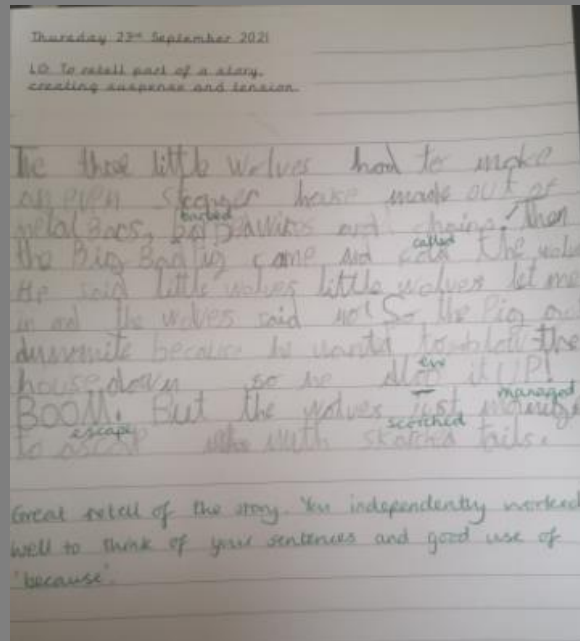 Thursday 23rd September 2021
LO: To retell part of a story,
creating suspense and tension.
The three little wolves had to make
an even house made out of
barbed
metal Bars, and chains. Then
called
the Big Bad Pig came and the
He said little wolves little wolves let me
in and the wolves said no! So the Pig
because he to blow the
ew
house down so he it UP!
managed
BOOM! But the wolves just
escape scorched
to with tails.
Great retell of the story. You independently worked
well to think of your sentences and good use of
'because'.